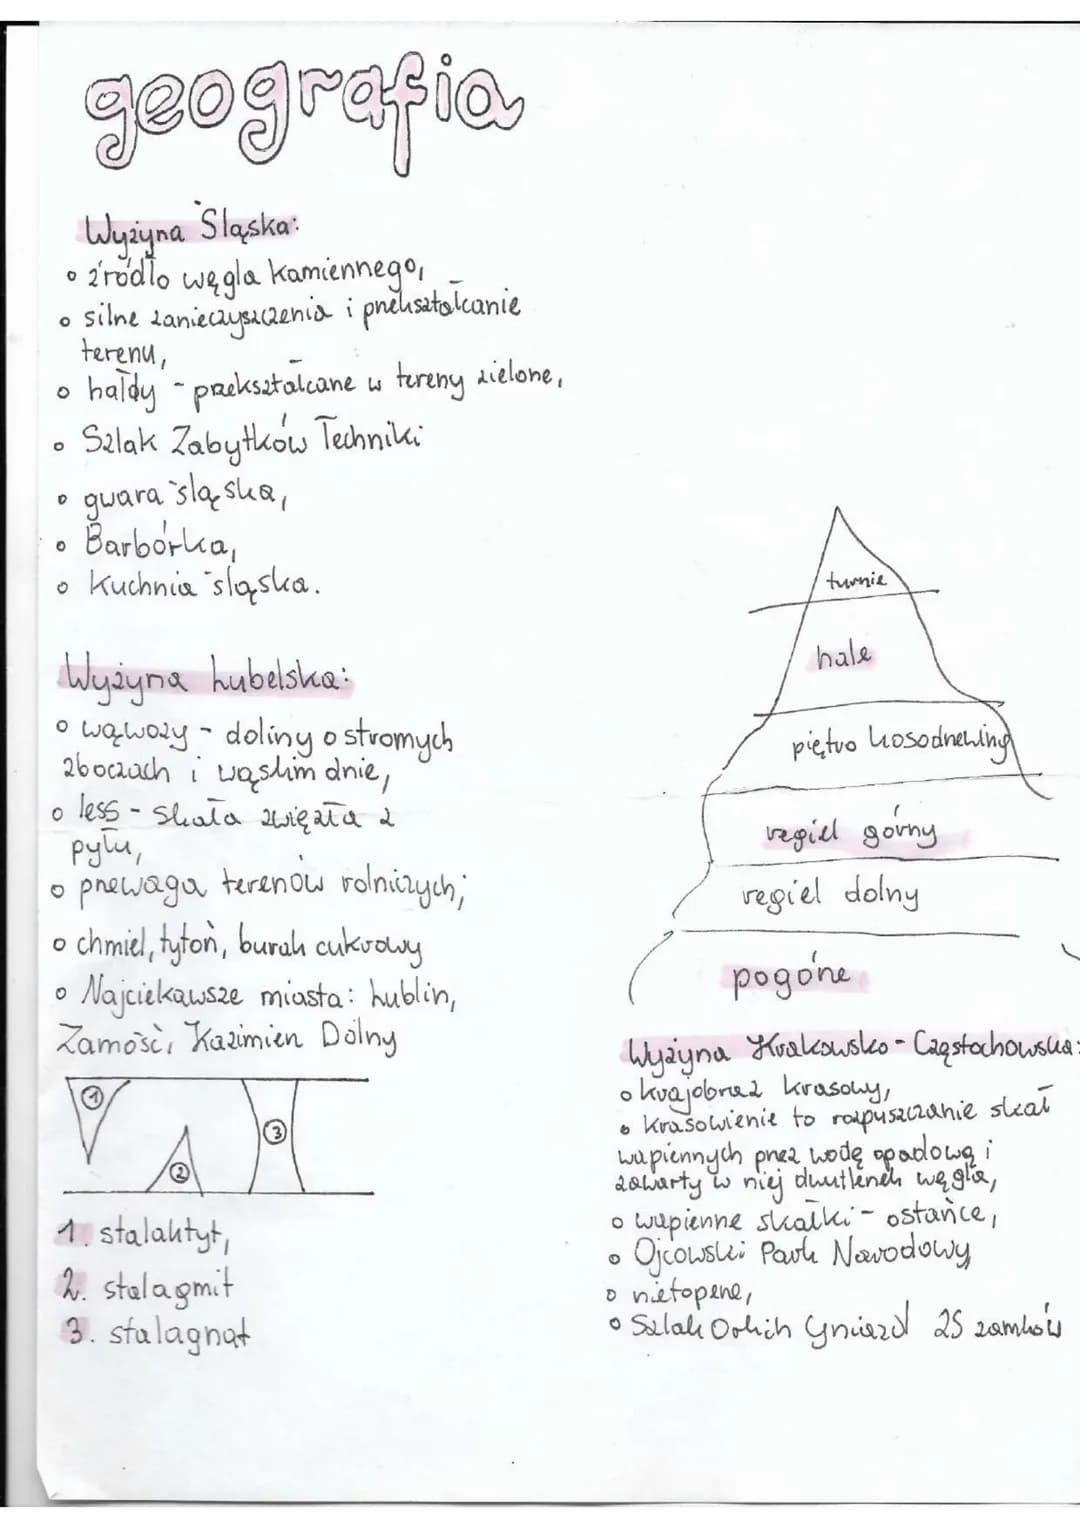 geografia
Wyżyna Śląska:
• źródło węgla kamiennego,
• silne zanieczyszczenia i przekształcanie
terenu,
• hałdy - przekształcane w tereny zielone,
• Szlak Zabytków Techniki
• gwara śląska,
• Barbórka,
• Kuchnia śląska.
Wyżyna Lubelska:
• wąwozy - doliny o stromych
zboczach i wąskim dnie,
• less - skała zwięzła z
pyłu,
• przewaga terenów rolniczych;
• chmiel, tytoń, burak cukrowy
• Najciekawsze miasta: Lublin,
Zamość, Kazimierz Dolny
1
2
3
1. stalaktyt,
2. stalagmit
3. stalagnat
turnie
hale
piętro kosodrzewiny
regiel górny
regiel dolny
pogórze
Wyżyna Krakowsko - Częstochowska:
• krajobraz krasowy,
• krasowienie to rozpuszczanie skał
wapiennych przez wodę opadową i
zawarty w niej dwutlenek węgla,
• wapienne skałki - ostańce,
• Ojcowski Park Narodowy
• nietoperze,
• Szlak Orlich Gniazd 25 zamków